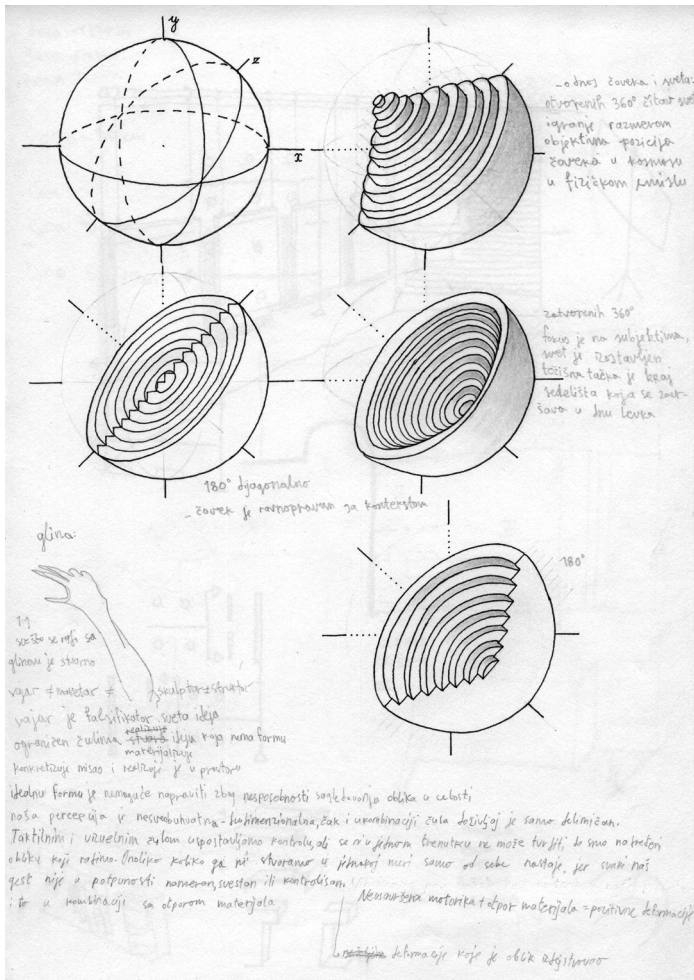 y
z
x
– odnos čoveka i sveta
otvorenih 360° čitav svet
igranje razmerom
objektivna pozicija
čoveka u kosmosu
u fizičkom smislu
zatvorenih 360°
fokus je na subjektima,
svet je izostavljen
težišna tačka je kraj
sedelišta koja se zavr-
šava u dnu levka
180° dijagonalno
– čovek je ravnopravan sa kontekstom
180°
glina:
1:1
što se radi sa
glinom je stvarno
vajar ≠ maketar ≠ skulptor ≠ struktor
vajar je falsifikator sveta ideja
realizuje
ograničen čulima stvara ideju koja nema formu
materijalizuje
konkretizuje misao i realizuje je u prostoru
idealnu formu je nemoguće napraviti zbog nesposobnosti sagledavanja oblika u celosti
naša percepcija je nesveobuhvatna, čak i u kombinaciji čula doživljaj je samo delimičan.
Taktilnim i vizuelnim čulom uspostavljamo kontrolu, ali se ni u jednom trenutku ne može tvrditi da smo
obliku koji radimo. Onoliko koliko ga mi stvaramo u jednakoj meri samo od sebe nastaje, jer svaki naš
gest nije u potpunosti nameran, svestan ili kontrolisan.
i to u kombinaciji sa otporom materijala
Nesavršena motorika + otpor materijala = pozitivne deformacije
deformacije koje je oblik izdejstvovao